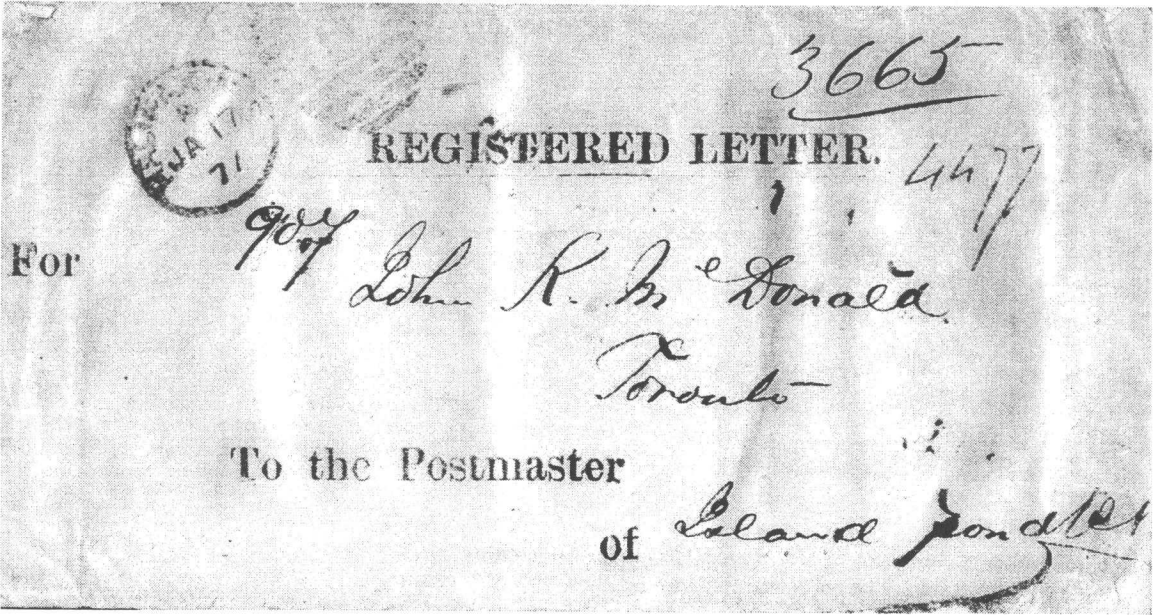 3665
REGISTERED LETTER.
4477
JA 17
71
907
For John R. Mc Donald
Toronto
To the Postmaster
of Island Pond Vt